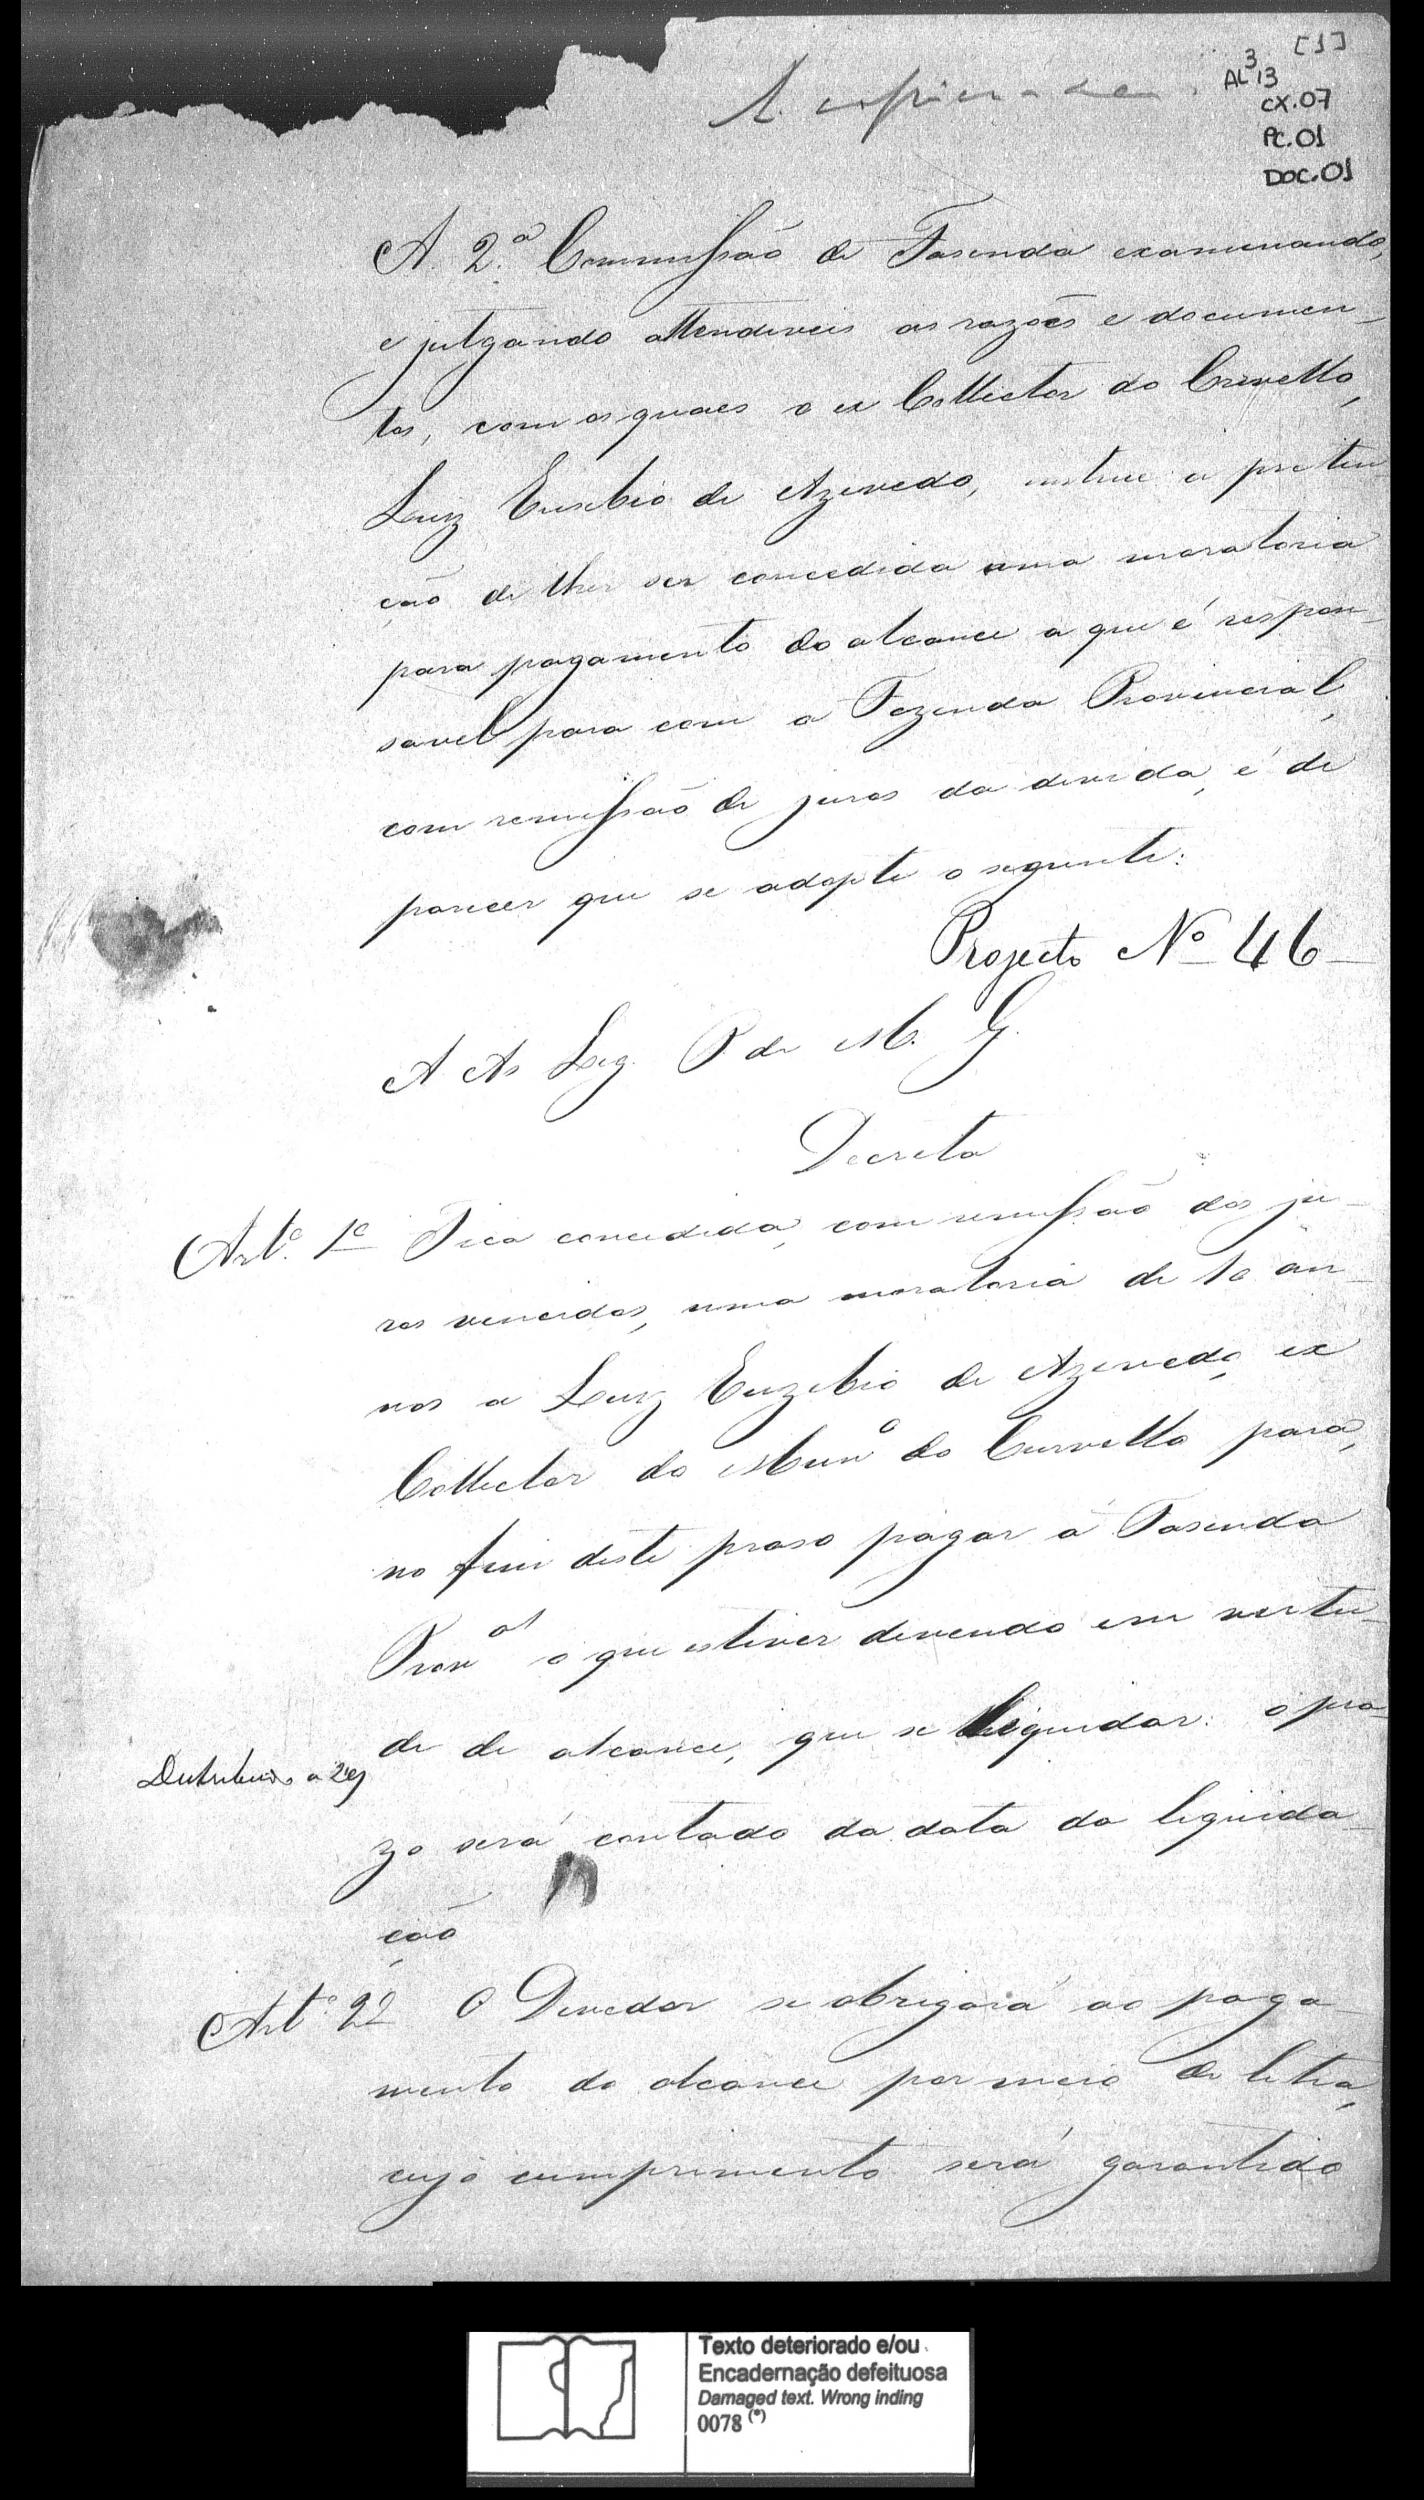 [1]
AL 3 13
CX.07
PC.01
DOC.01
A 2.ª Commissão de Fasenda examinando,
e julgando attendiveis as razões e documen-
tos, com os quaes o ex Collector do Curvello,
Luiz Eusebio de Azevedo, instrue a preten
ção de lhe ser concedida uma moratoria
para pagamento do alcance a que é respon-
savel para com a Fazenda Provincial,
com remissão de juros da divida, é de
parecer que se adopte o seguinte:
Projecto Nº 46
A As Leg. P. de M. G.
Decreta
Artº. 1º Fica concedida, com remissão dos ju-
ros vencidos, uma moratoria de 10 an-
nos a Luiz Euzebio de Azevedo, ex
Collector do Munº do Curvello para,
no fim deste praso pagar á Fasenda
Proval o que estiver devendo em virtu-
de de alcance, que se liquidar: o pra-
zo será contado da data da liquida-
ção
Distribuido a 29
Artº 2º O Devedor se obrigará ao paga
mento do alcance por meio de letra,
cujo cumprimento será garantido
Texto deteriorado e/ou
Encadernação defeituosa
Damaged text. Wrong inding
0078 (*)